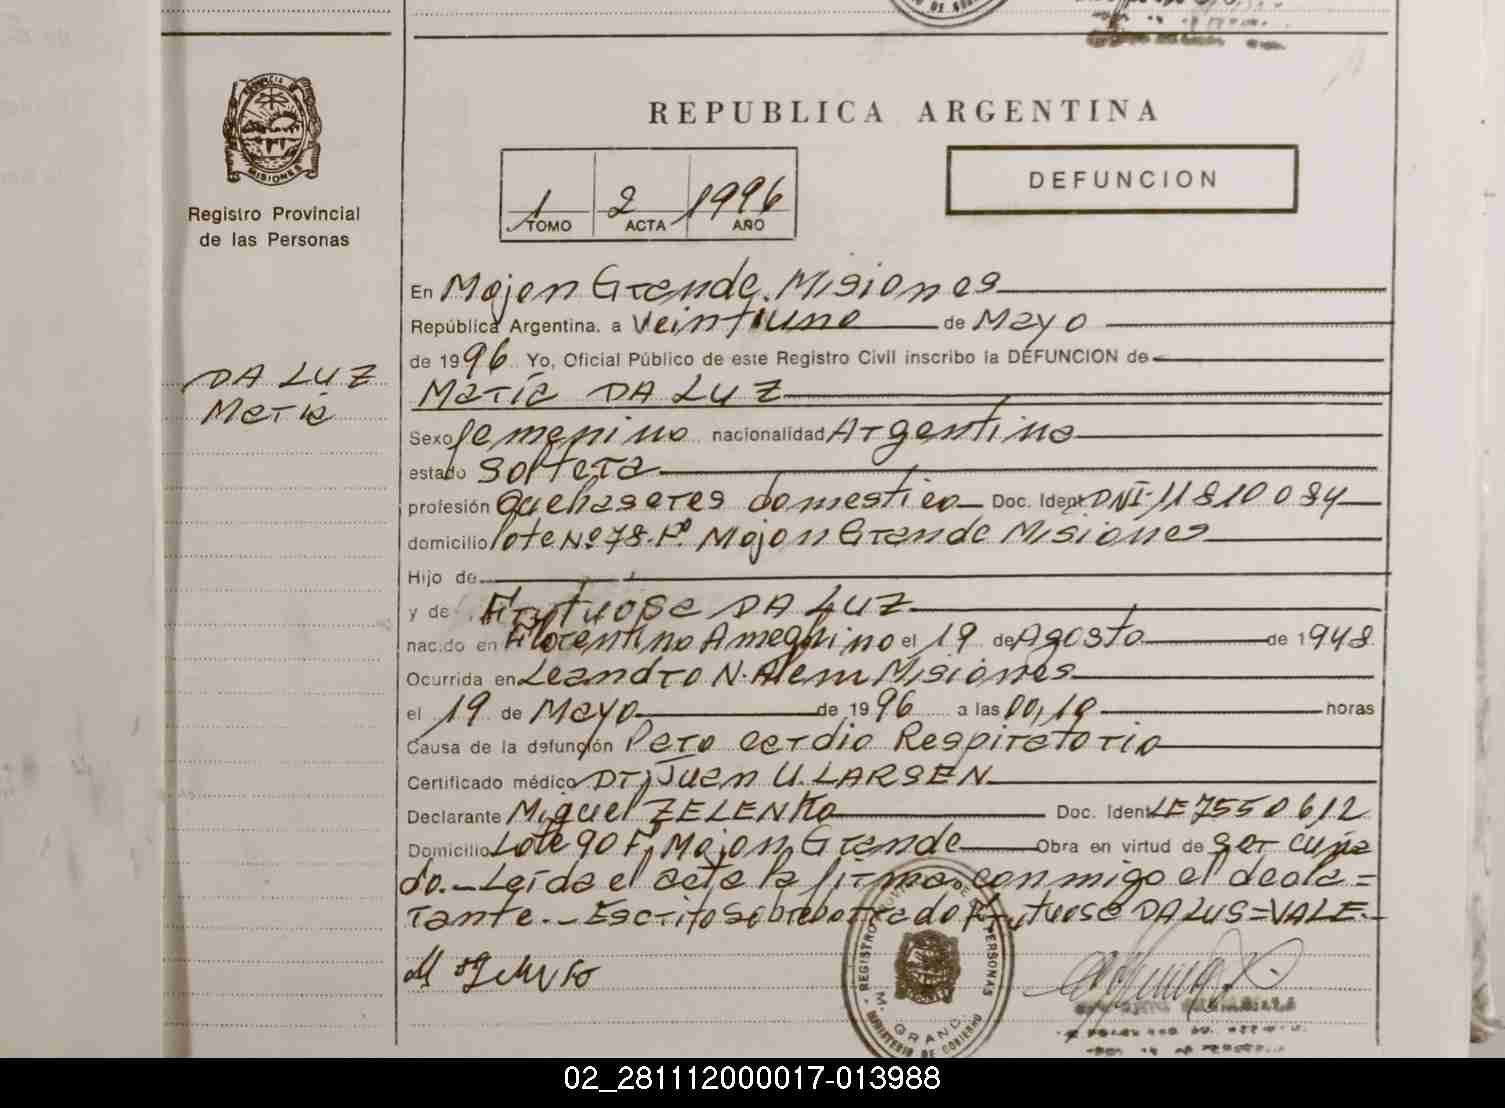 REPUBLICA ARGENTINA
DEFUNCION
1 2 1996
TOMO ACTA AÑO
PROVINCIA DE
MISIONES
Registro Provincial
de las Personas
DA LUZ
María
En Mojon Grande. Misiones
República Argentina. a Veintiuno de Mayo
de 1996. Yo, Oficial Público de este Registro Civil inscribo la DEFUNCION de
María DA LUZ
Sexo femenino nacionalidad Argentina
estado Soltera
profesión Quehaseres domestico Doc. Ident. DNI-11810084
domicilio lote Nº 78. Fº. Mojon Grande Misiones
Hijo de
y de Frutuosa DA LUZ
nacido en Florentino Ameghino el 19 de Agosto de 1948.
Ocurrida en Leandro N. Alem Misiones
el 19 de Mayo de 1996 a las 00,10 horas
Causa de la defunción Paro cardio Respiratorio
Certificado médico Dr, Juan U. LARSEN
Declarante Miguel ZELENKO Doc. Ident. LE 7550612
Domicilio Lote 90 F, Mojon Grande Obra en virtud de Ser Cuña
do. - Leída el acta la firma conmigo el decla=
rante. - Escrito Sobreborrado Frutuosa DA LUS=VALE.-
REGISTRO DE PERSONAS
M. GRAND.
MINISTERIO DE GOBIERNO
02_281112000017-013988